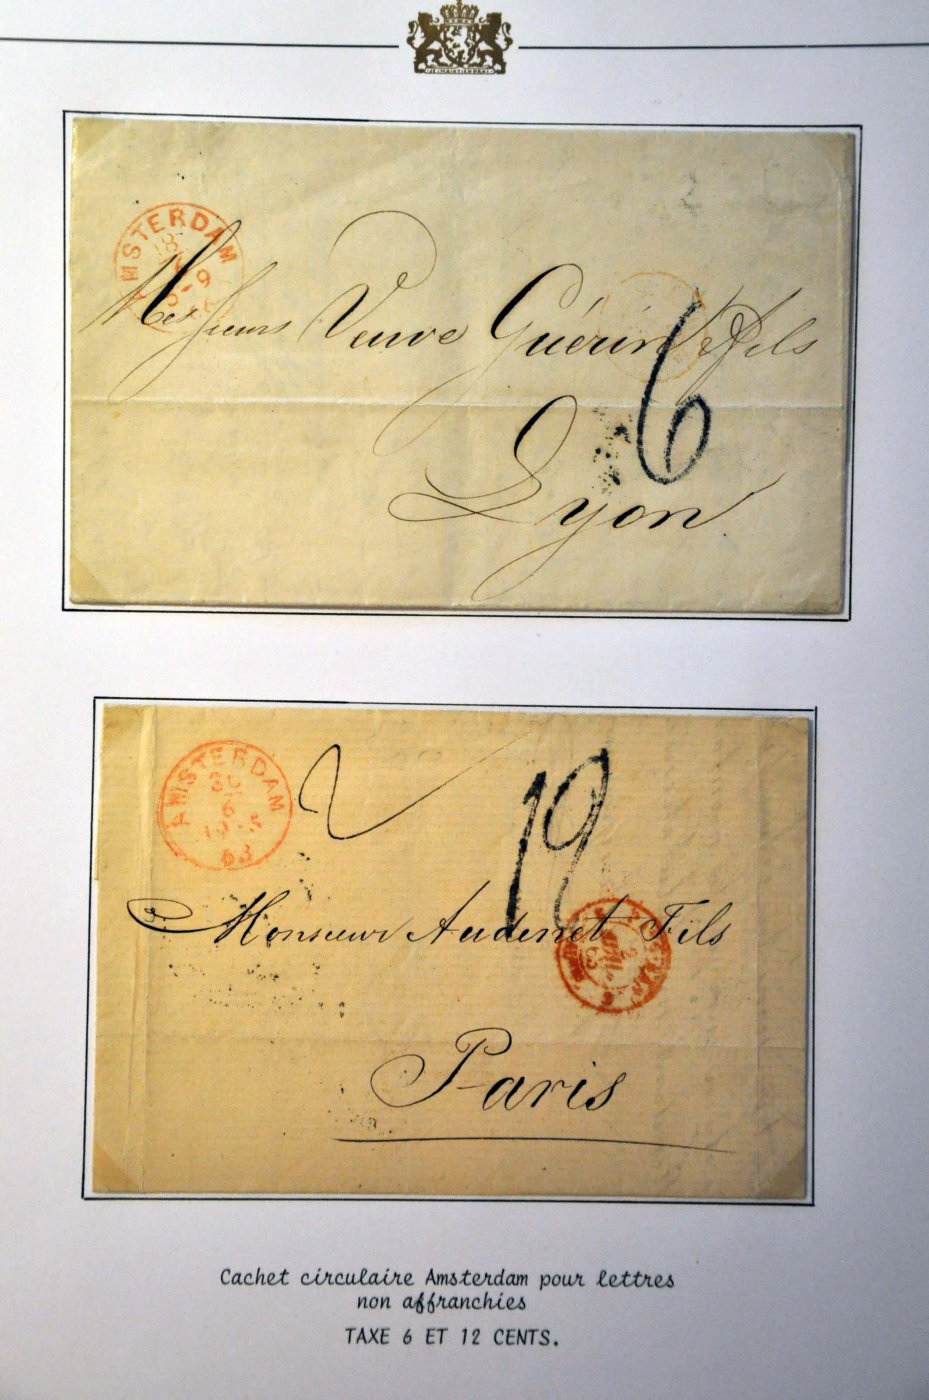 AMSTERDAM
Messieurs Veuve Guérin & Fils
6
Lyon
AMSTERDAM
63
12
Monsieur Audenet Fils
2
63
Paris
Cachet circulaire Amsterdam pour lettres
non affranchies
TAXE 6 ET 12 CENTS.